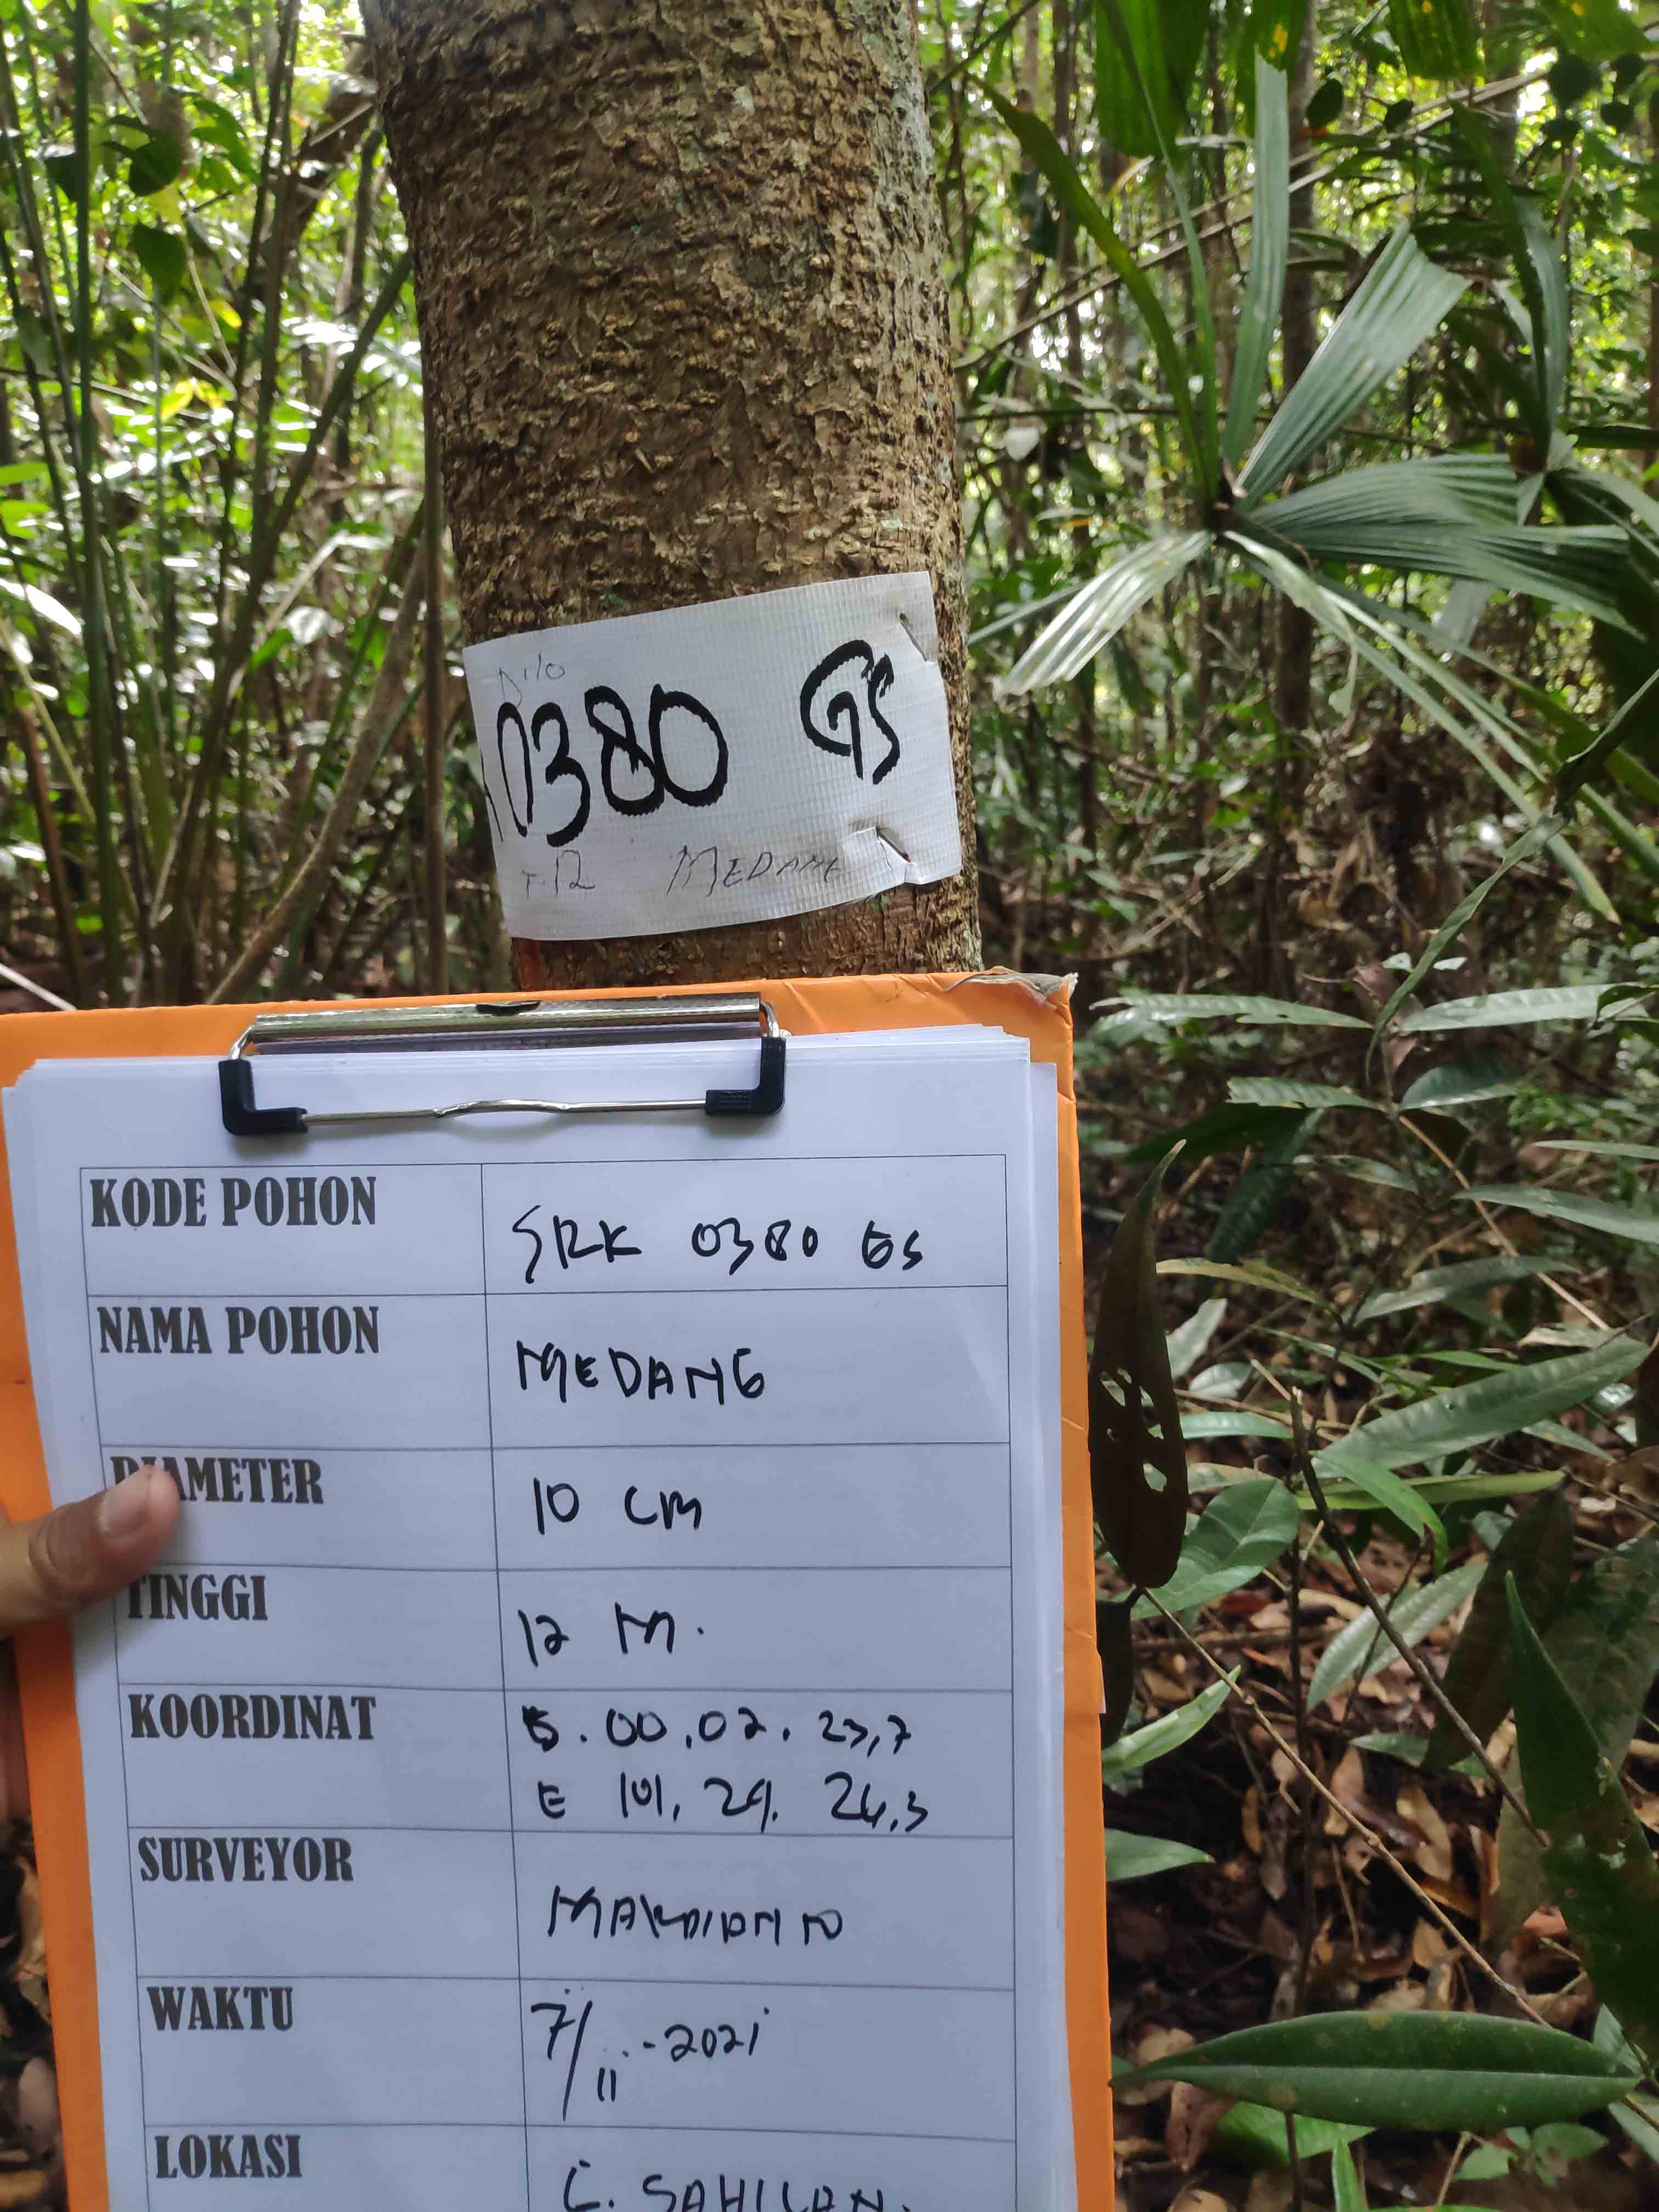 D 10
0380 GS
T. 12 MEDANG
KODE POHON SRK 0380 GS
NAMA POHON MEDANG
DIAMETER 10 CM
TINGGI 12 M.
KOORDINAT S. 00.02. 23,7
E 101. 29. 24,3
SURVEYOR
WAKTU 7/11-2021
LOKASI G. SAHILAN.